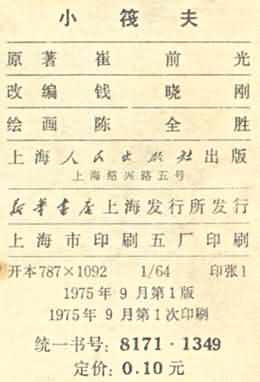 小筏夫
原著 崔前光
改编 钱晓刚
绘画 陈全胜
上海人民出版社出版
上海绍兴路五号
新华书店上海发行所发行
上海市印刷五厂印刷
开本787×1092 1/64 印张1
1975年9月第1版
1975年9月第1次印刷
统一书号: 8171·1349
定价: 0.10元